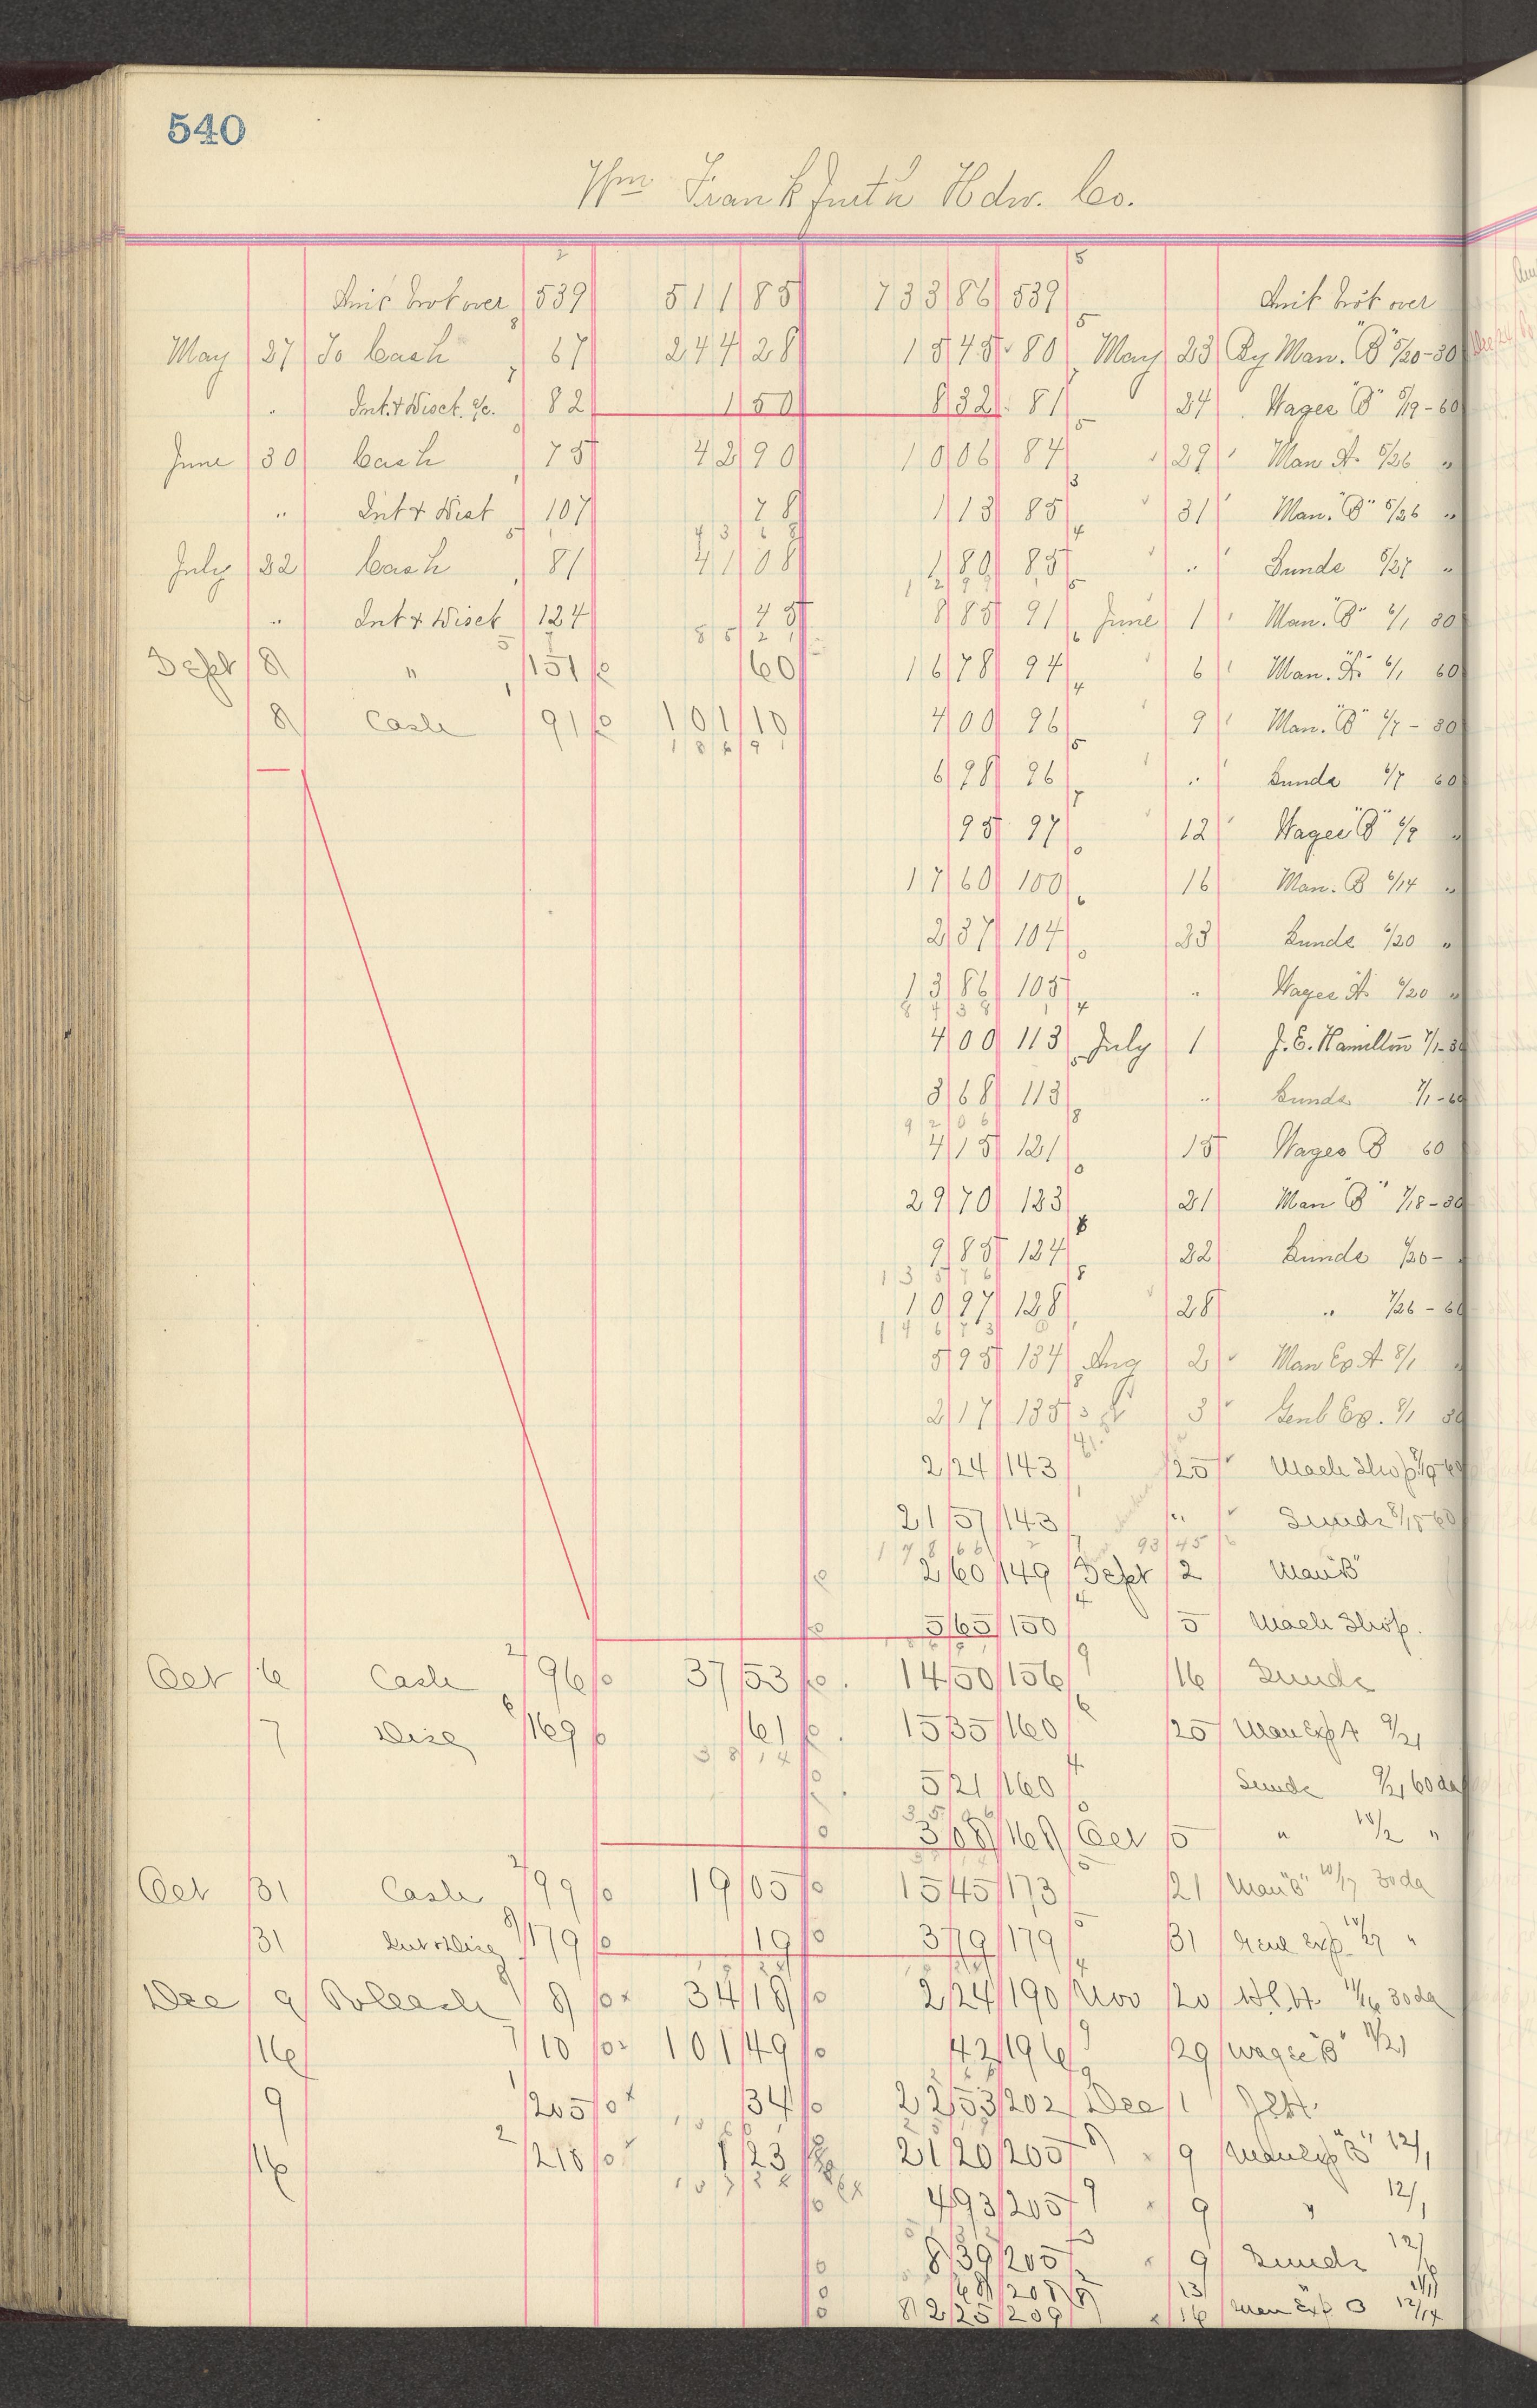 540
Wm Frankfurth Hdw. Co.
Amt brot over 539 511 85 733 86 539 Amt brot over
May 27 To Cash 67 244 28 15 45 80 May 23 By Man. "B" 5/20-30
" Int. & Disct. a/c. 82 1 50 8 32 81 24 Wages "B" 5/19-60
June 30 Cash 75 42 90 10 06 84 29 Man A. 5/26 "
" Int & Disct 107 78 1 13 85 31 Man. "B" 5/26 "
July 22 Cash 81 41 08 1 80 85 " Sunds 5/27 "
" Int & Disct 124 45 8 85 91 June 1 Man. "B" 6/1 30
Sept 8 " 151 60 16 78 94 6 Man. "A" 6/1 60
8 Cash 91 101 10 4 00 96 9 Man. "B" 6/7-30
1 8 6 9 1
6 98 96 " Sunds 6/7 60
95 97 12 Wages "B" 6/9 "
17 60 100 16 Man. B 6/14 "
2 37 104 23 Sunds 6/20 "
13 86 105 " Wages A 6/20 "
4 00 113 July 1 J. E. Hamilton 7/1-30
3 68 113 " Sunds 7/1-60
9 2 0 6
4 15 121 15 Wages B 60
29 70 123 21 Man "B" 7/18-30
9 85 124 22 Sunds 7/20-
1 3 5 7 6
10 97 128 28 " 7/26-60
1 4 6 7 3
5 95 134 Aug 2 Man Ex A 8/1 "
2 17 135 3 Genl Ex. 8/1 30
2 24 143 25 Mach Shop 8/19-60
21 57 143 " Sunds 8/18-60
1 7 8 6 6 93 45
2 60 149 Sept 2 Man "B"
5 65 150 5 Mach Shop.
Oct 6 Cash 96 37 53 14 50 156 16 Sunds
7 Disc 169 61 15 35 160 25 Man Exp A 9/21
3 8 1 4
5 21 160 Sunds 9/21 60 da
3 08 168 Oct 5 " 10/2 "
Oct 31 Cash 99 19 05 15 45 173 21 Man "B" 10/17 30 da
31 Int & Disc 179 19 3 79 179 31 Genl Exp. 10/27 "
Dec 9 To Cash 8 34 18 2 24 190 Nov 20 11/16 30 da
16 10 101 49 42 196 29 Wages "B" 11/21
9 205 34 22 53 202 Dec 1 JEH.
16 210 1 23 21 20 205 9 Man Exp "B" 12/1
4 93 205 9 " 12/1
8 39 205 9 Sunds 12/6
68 208 13
8 2 25 209 16 Man Exp B 12/14